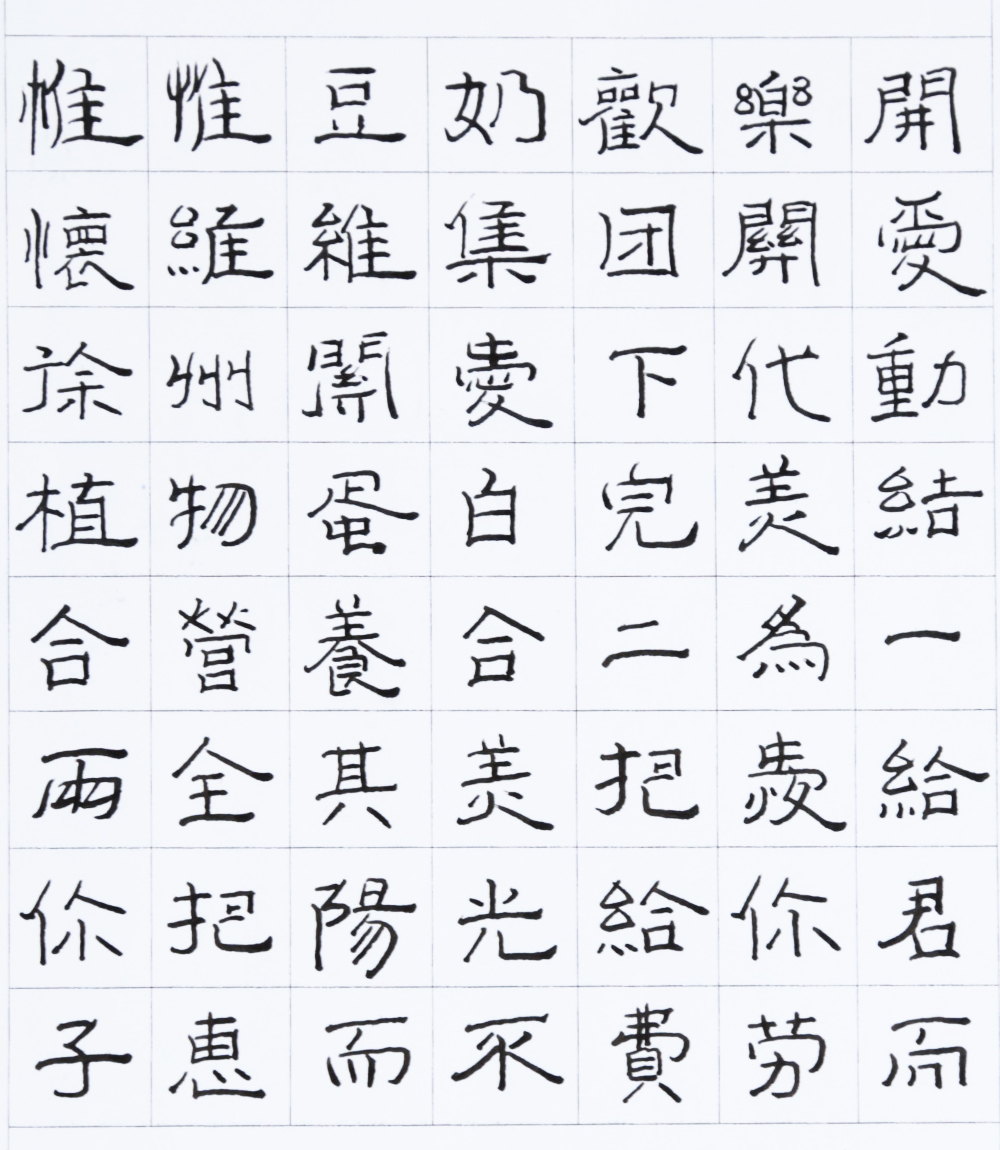 帷惟豆奶歡樂開
懷維維集团關愛
徐州關愛下代動
植物蛋白完美結
合營養合二為一
兩全其美把愛給
你把陽光給你君
子惠而不費劳而